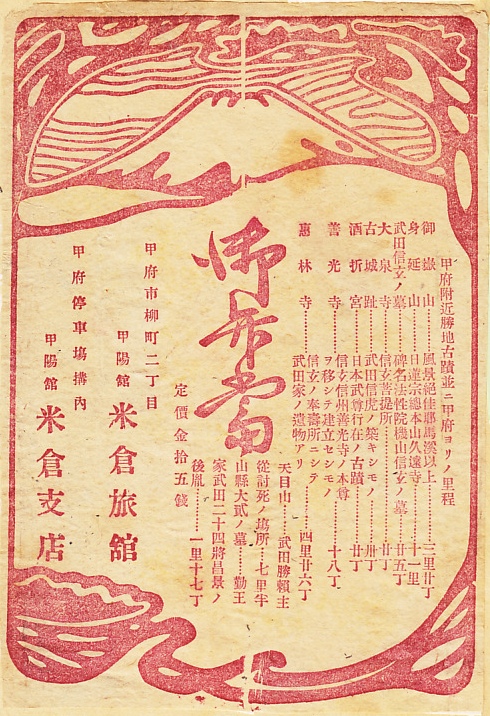 甲府附近勝地古蹟並ニ甲府ヨリノ里程
御嶽山………風景絶佳耶馬溪以上………三里廿丁
身延山………日蓮宗總本山久遠寺………十一里
武田信玄ノ墓………碑名法性院機山信玄ノ墓………廿五丁
大泉寺………信玄菩提所………廿丁
古城趾………武田信虎ノ築キシモノ………卅丁
酒折宮………日本武尊行在ノ古蹟………廿丁
善光寺………信玄信州善光寺ノ本尊ヲ移シテ建立セシモノ………十八丁
惠林寺………信玄ノ奉壽所ニシテ武田家ノ遺物アリ………四里廿六丁
天目山………武田勝頼主
從討死ノ塲所………七里半
山縣大貳ノ墓………勤王
家武田二十四將昌景ノ
後胤………一里十七丁
御弁當
定價金拾五錢
甲府市柳町二丁目
甲陽館 米倉旅館
甲府停車塲搆內
甲陽館 米倉支店